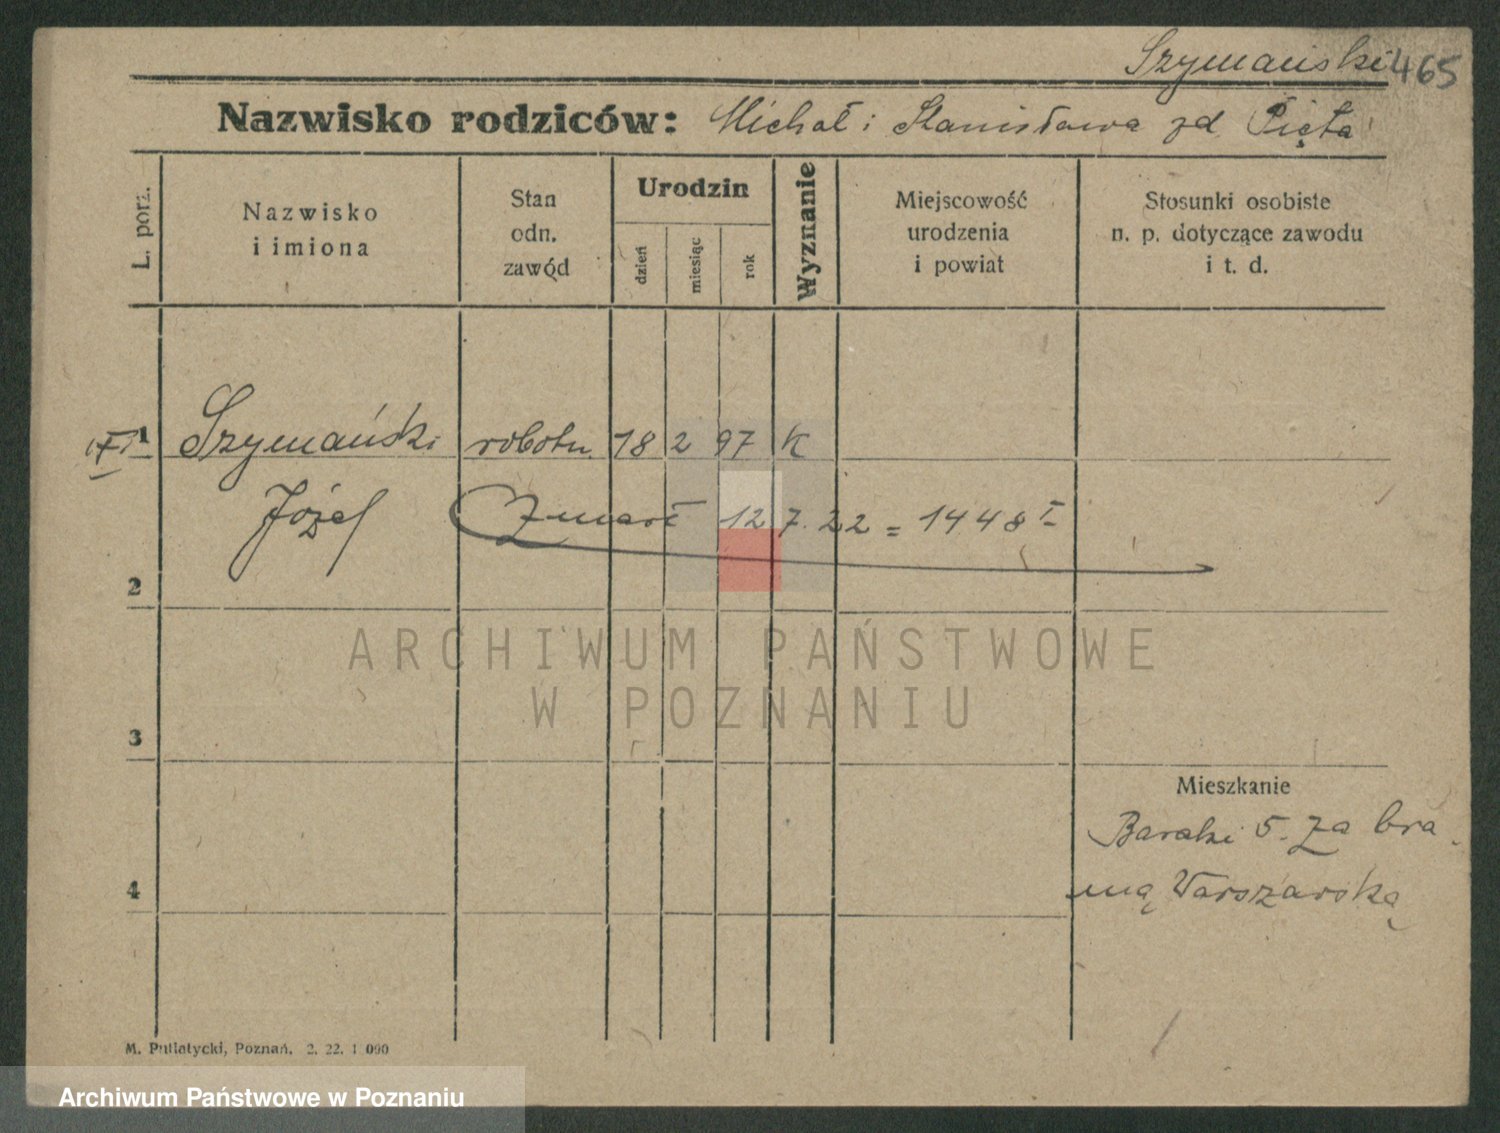 Szymański 465
Nazwisko rodziców: Michał i Stanisława zd Pięta
L. porz.
Nazwisko
i imiona
Stan
odn.
zawód
Urodzin
dzień
miesiąc
rok
Wyznanie
Miejscowość
urodzenia
i powiat
Stosunki osobiste
n. p. dotyczące zawodu
i t. d.
1 Szymański robotn. 18 2 97 K
Józef Zmarł 12 7. 22 = 1448 I
2
ARCHIWUM PAŃSTWOWE
W POZNANIU
3
Mieszkanie
Baraki 5. Za bra
4 mą Warszawską
M. Putiatycki, Poznań. 2. 22. 1 090
Archiwum Państwowe w Poznaniu